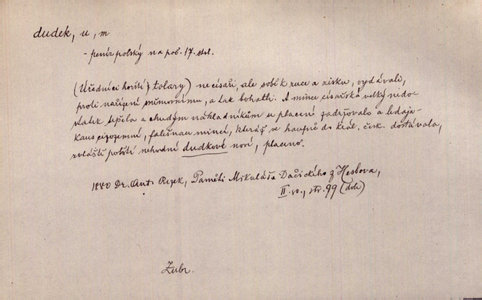 dudek, u, m.
- peníz polský na poč. 17. stol.
(Úředníci horští z tolary) ne císaři, ale sobě k ruce a zisku, vydávali,
proti nařízení
, a tak bohatli. A mince císařská velký nedo-
statek trpěla a chudým náhladníkům v placení
a ledaja-
kous cizozemní, falešnau mincí, kteráž se haufně do král. čes. dostávala,
zvláště potom nehodné dudkové noví, placeno.
1880 Dr. Ant. Rezek, Paměti Mikuláše Dačického z Heslova,
II. sv., str. 99 (dok)
Zubr.